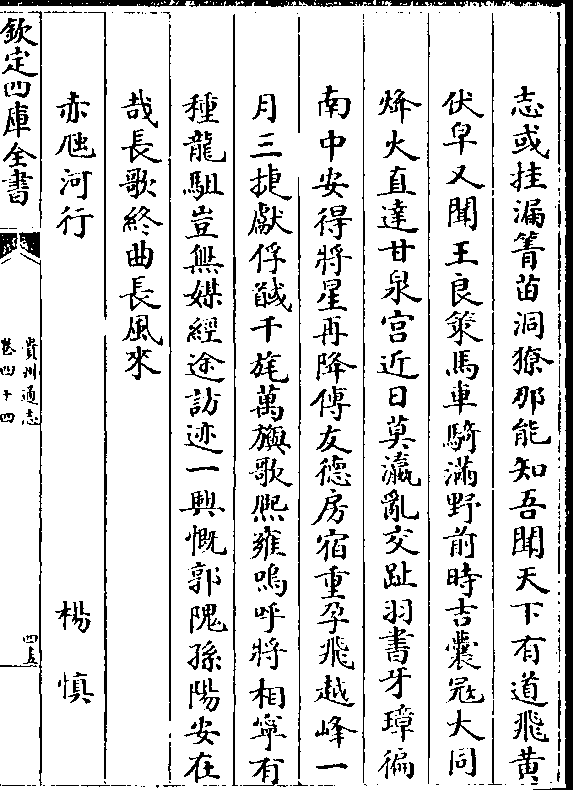 志或挂漏箐苗洞獠那能知吾聞天下有道飛黄
伏皁又聞王良策馬車騎滿野前時吉囊冦大同
烽火直達甘泉宫近日莫瀛亂交趾羽書牙璋徧
南中安得將星再降傅友德房宿重孕飛越峰一
月三捷獻俘馘千旄萬旟歌熙雍嗚呼將相寧有
種龍駔豈無媒經途訪迹一興慨郭隗孫陽安在
哉長歌終曲長風來
赤虺河行 楊慎
欽定四庫全書
貴州通志
卷四十四
四五